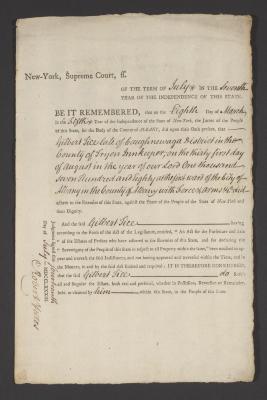 New-York, Supreme Court, ss.
OF THE TERM OF July IN THE Seventh
YEAR OF THE INDEPENDENCE OF THIS STATE.
BE IT REMEMBERED, that on the Eighth Day of March
in the Sixth Year of the Independence of the State of New-York, the Jurors of the People
of this State, for the Body of the County of ALBANY, did upon their Oath present, that
Gilbert Tice late of Caughnawaga District in the
County of Tryon Innkeeper, on the thirty first day
of August in the year of our Lord One thousand
Seven Hundred and Eighty at the said ward of the City of
Albany in the County of Albany with Force & Arms &c. did
adhere to the Enemies of this State, against the Peace of the People of the State of New-York and
their Dignity.
And the said Gilbert Tice having
according to the Form of the Act of the Legislature, entitled, "An Act for the Forfeiture and Sale
of the Estates of Persons who have adhered to the Enemies of this State, and for declaring the
Sovereignty of the People of this State in respect to all Property within the same," been notified to ap-
pear and traverse the said Indictment, and not having appeared and traversed within the Time, and in
the Manner, in and by the said Act limited and required; IT IS THEREFORE CONSIDERED,
that the said Gilbert Tice do forfeit
all and singular the Estate, both real and personal, whether in Possession, Reversion or Remainder,
held or claimed by him within this State, to the People of this State.
Judgment signed this fourteenth
Day of July MDCCLXXXIII.
Robert Yates